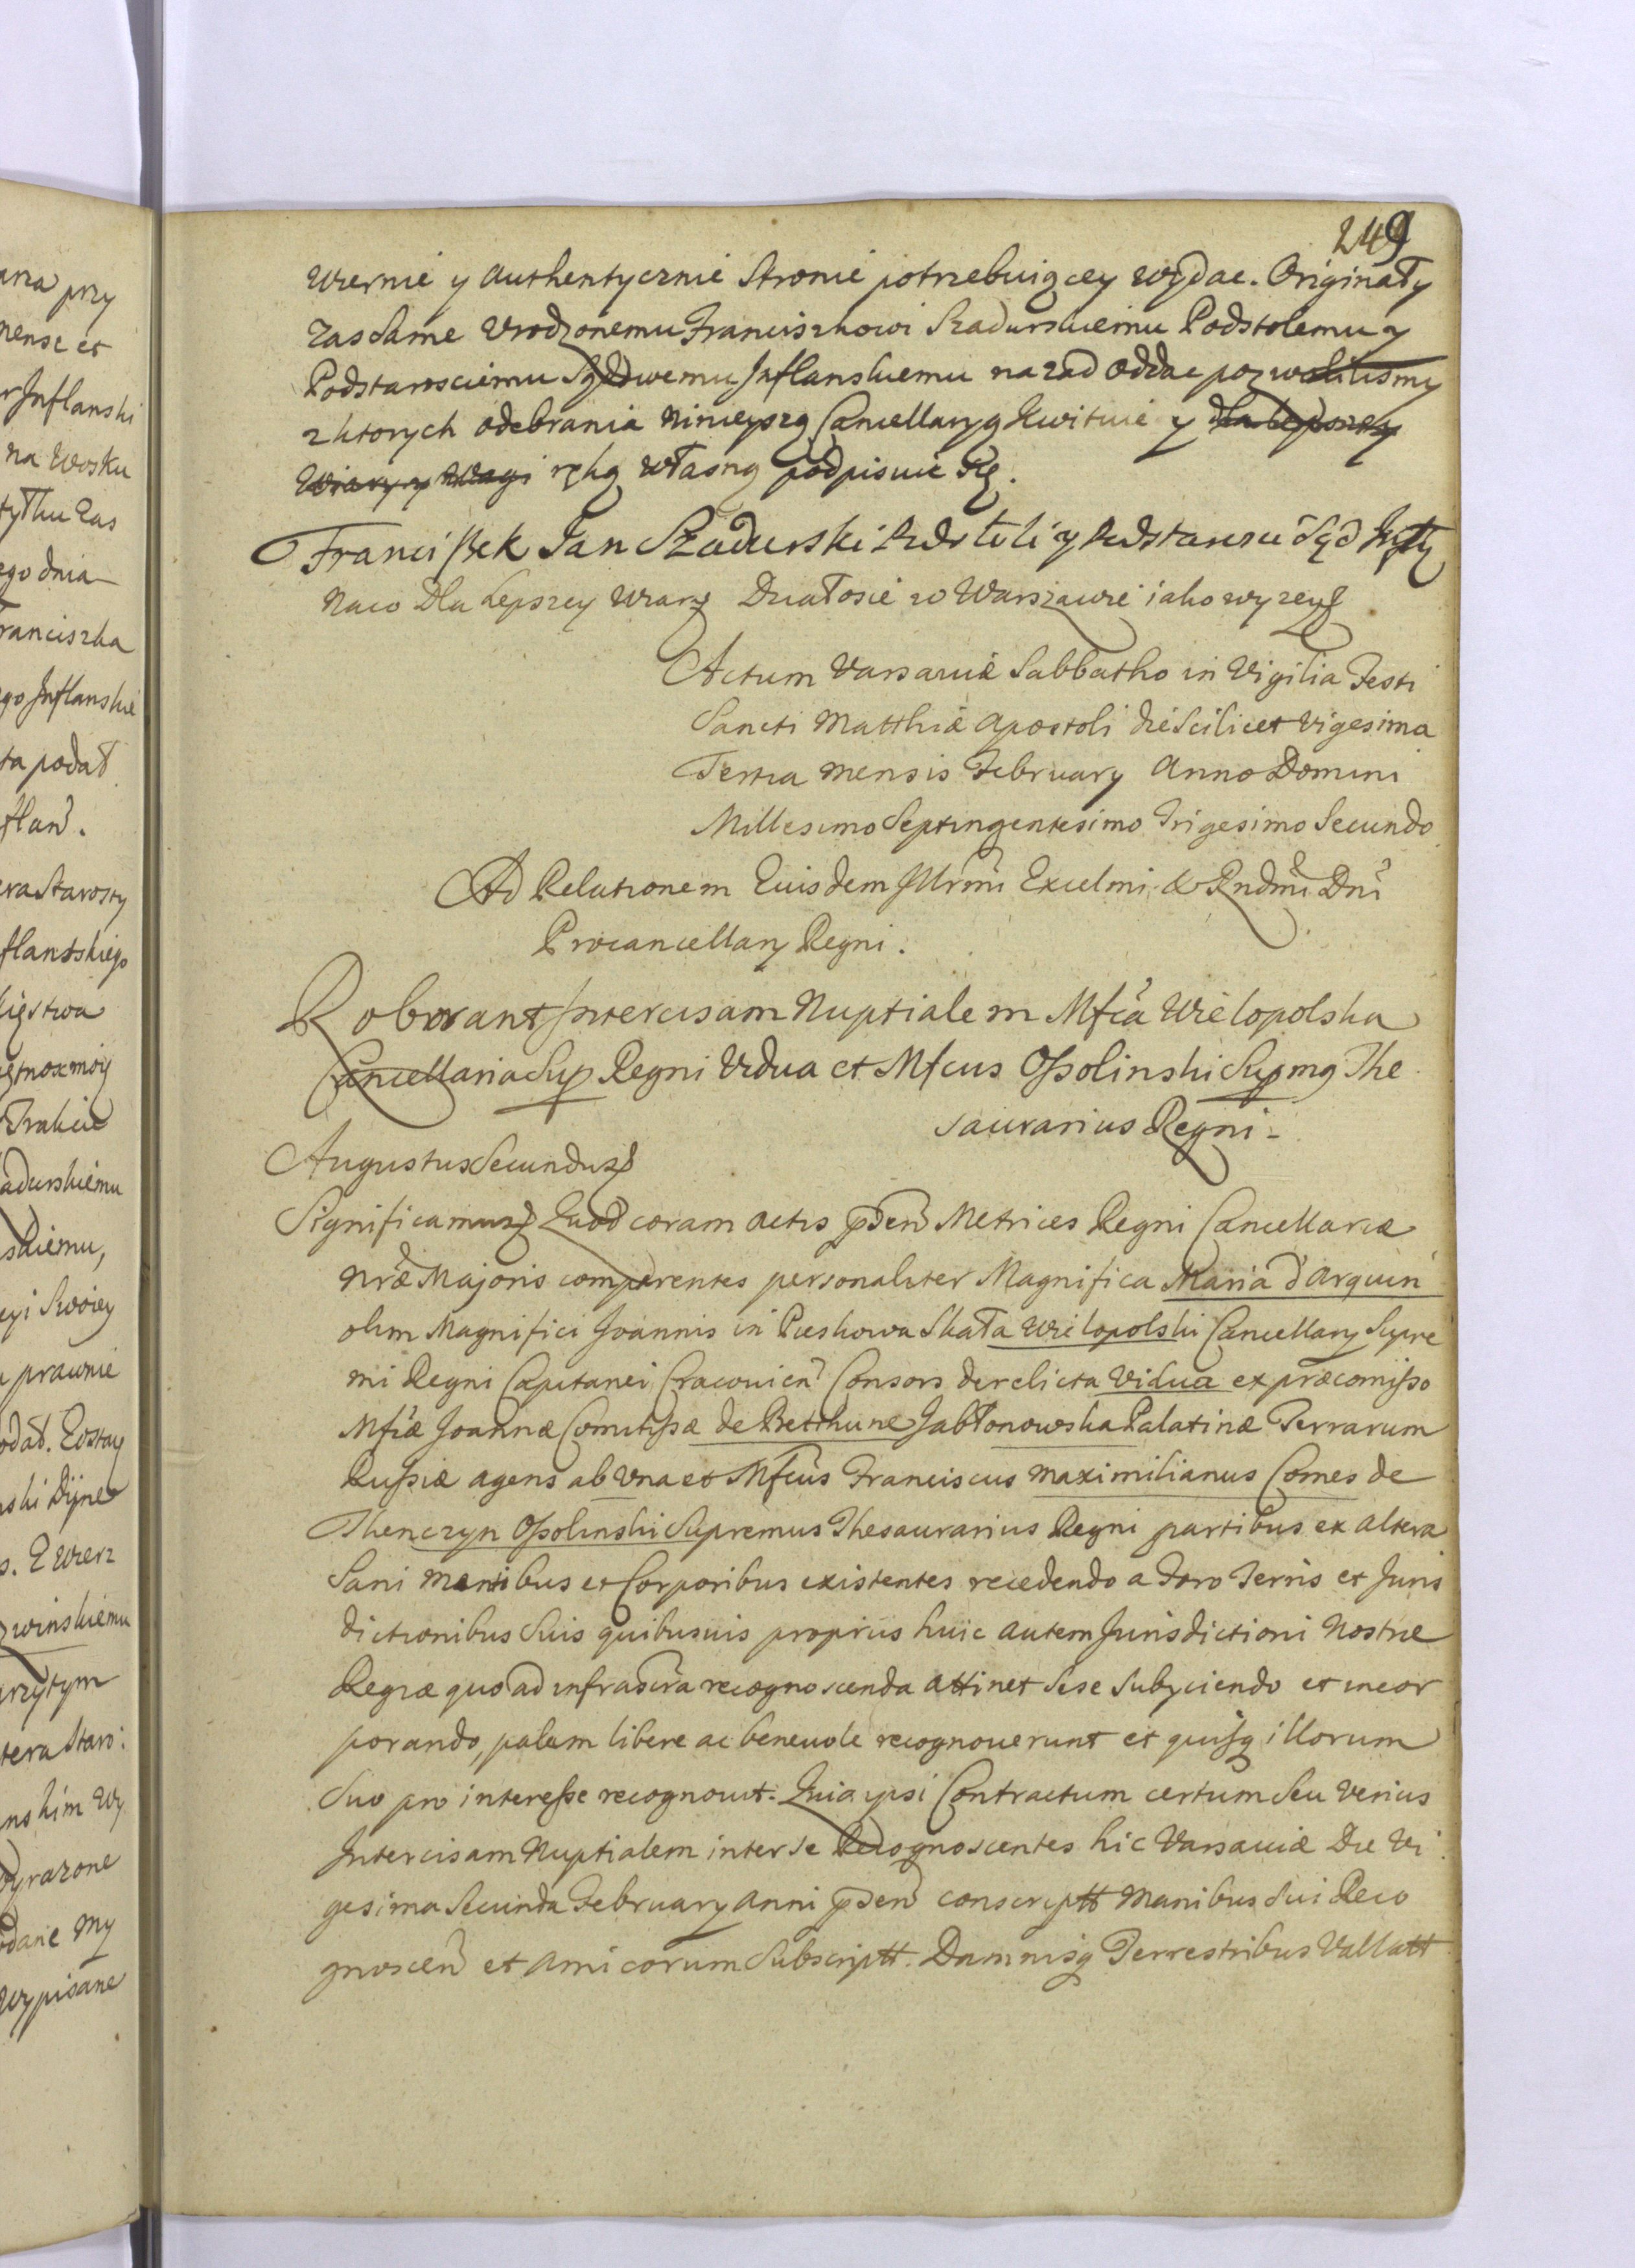 249
wiernie y authentycznie Stronie potrzebuiącey wydac. Originały
zas Same Urodzonemu Franciszkowi Szadurskiemu Podstolemu y
Podstarosciemu Sądowemu Inflanskiemu nazad oddac pozwolilismy
z ktorych odebrania ninieyszą Cancellaryą kwituie y dla lepszey
wiary y wagi ręką własną podpisuie się.
Franciszek Jan Szadurski
Naco Dla Lepszey wiary Działosie w Warszawie iako wyzey
Actum Varsaviæ Sabbatho in Vigilia Festi
Sancti Matthiæ Apostoli die Scilicet Vigesima
Tertia mensis February Anno Domini
Millesimo Septingentesimo Trigesimo Secundo
Ad Relationem Eiusdem Illrmi Excelmi & Rndmi Dni
Procancellary Regni.
Roborant Intercisam Nuptialem Mfca Wielopolska
Cancellaria Sup Regni Vidua et Mfcus Ossolinski Supmg The
saurarius Regni -
Augustus Secundus
Significamus Quod coram actis pden Metrices Regni Cancellariæ
Nræ Majoris comparentes personaliter Magnifica Maria d'Arquin
olim Magnifici Joannis in Pieskowa Skała Wielopolski Cancellary Supre
mi Regni Capitanei Cracovien Consors derelicta Vidua ex præcomisso
Mfcæ Joannæ Comitissæ de Betthune Jabłonowska Palatinæ Terrarum
Russiæ agens ab Una et Mfcus Franciscus Maximilianus Comes de
Thenczyn Ossolinski Supremus Thesaurarius Regni partibus ex altera
Sani mentibus et Corporibus existentes recedendo a Foro Terris et Juris
dictionibus Suis quibusvis propriis huic autem Jurisdictioni Nostræ
Regiæ quo ad infrascra recognoscenda attinet Sese Subyciendo et incor
porando, palam libere ac benevole recognoverunt et quisq illorum
Suo pro interesse recognovit. Quia ipsi Contractum certum Seu verius
Intercisam Nuptialem inter se Recognoscentes hic Varsaviæ Die Vi
gesima Secunda February Anni pden conscriptt Manibus Sui Reco
gnoscen et Amicorum Subscriptt. Damnisq Terrestribus Vallatt